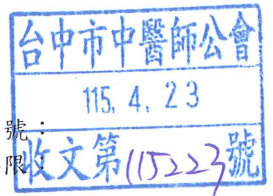 台中市中醫師公會
115. 4. 23
號：
限
收文第115223號